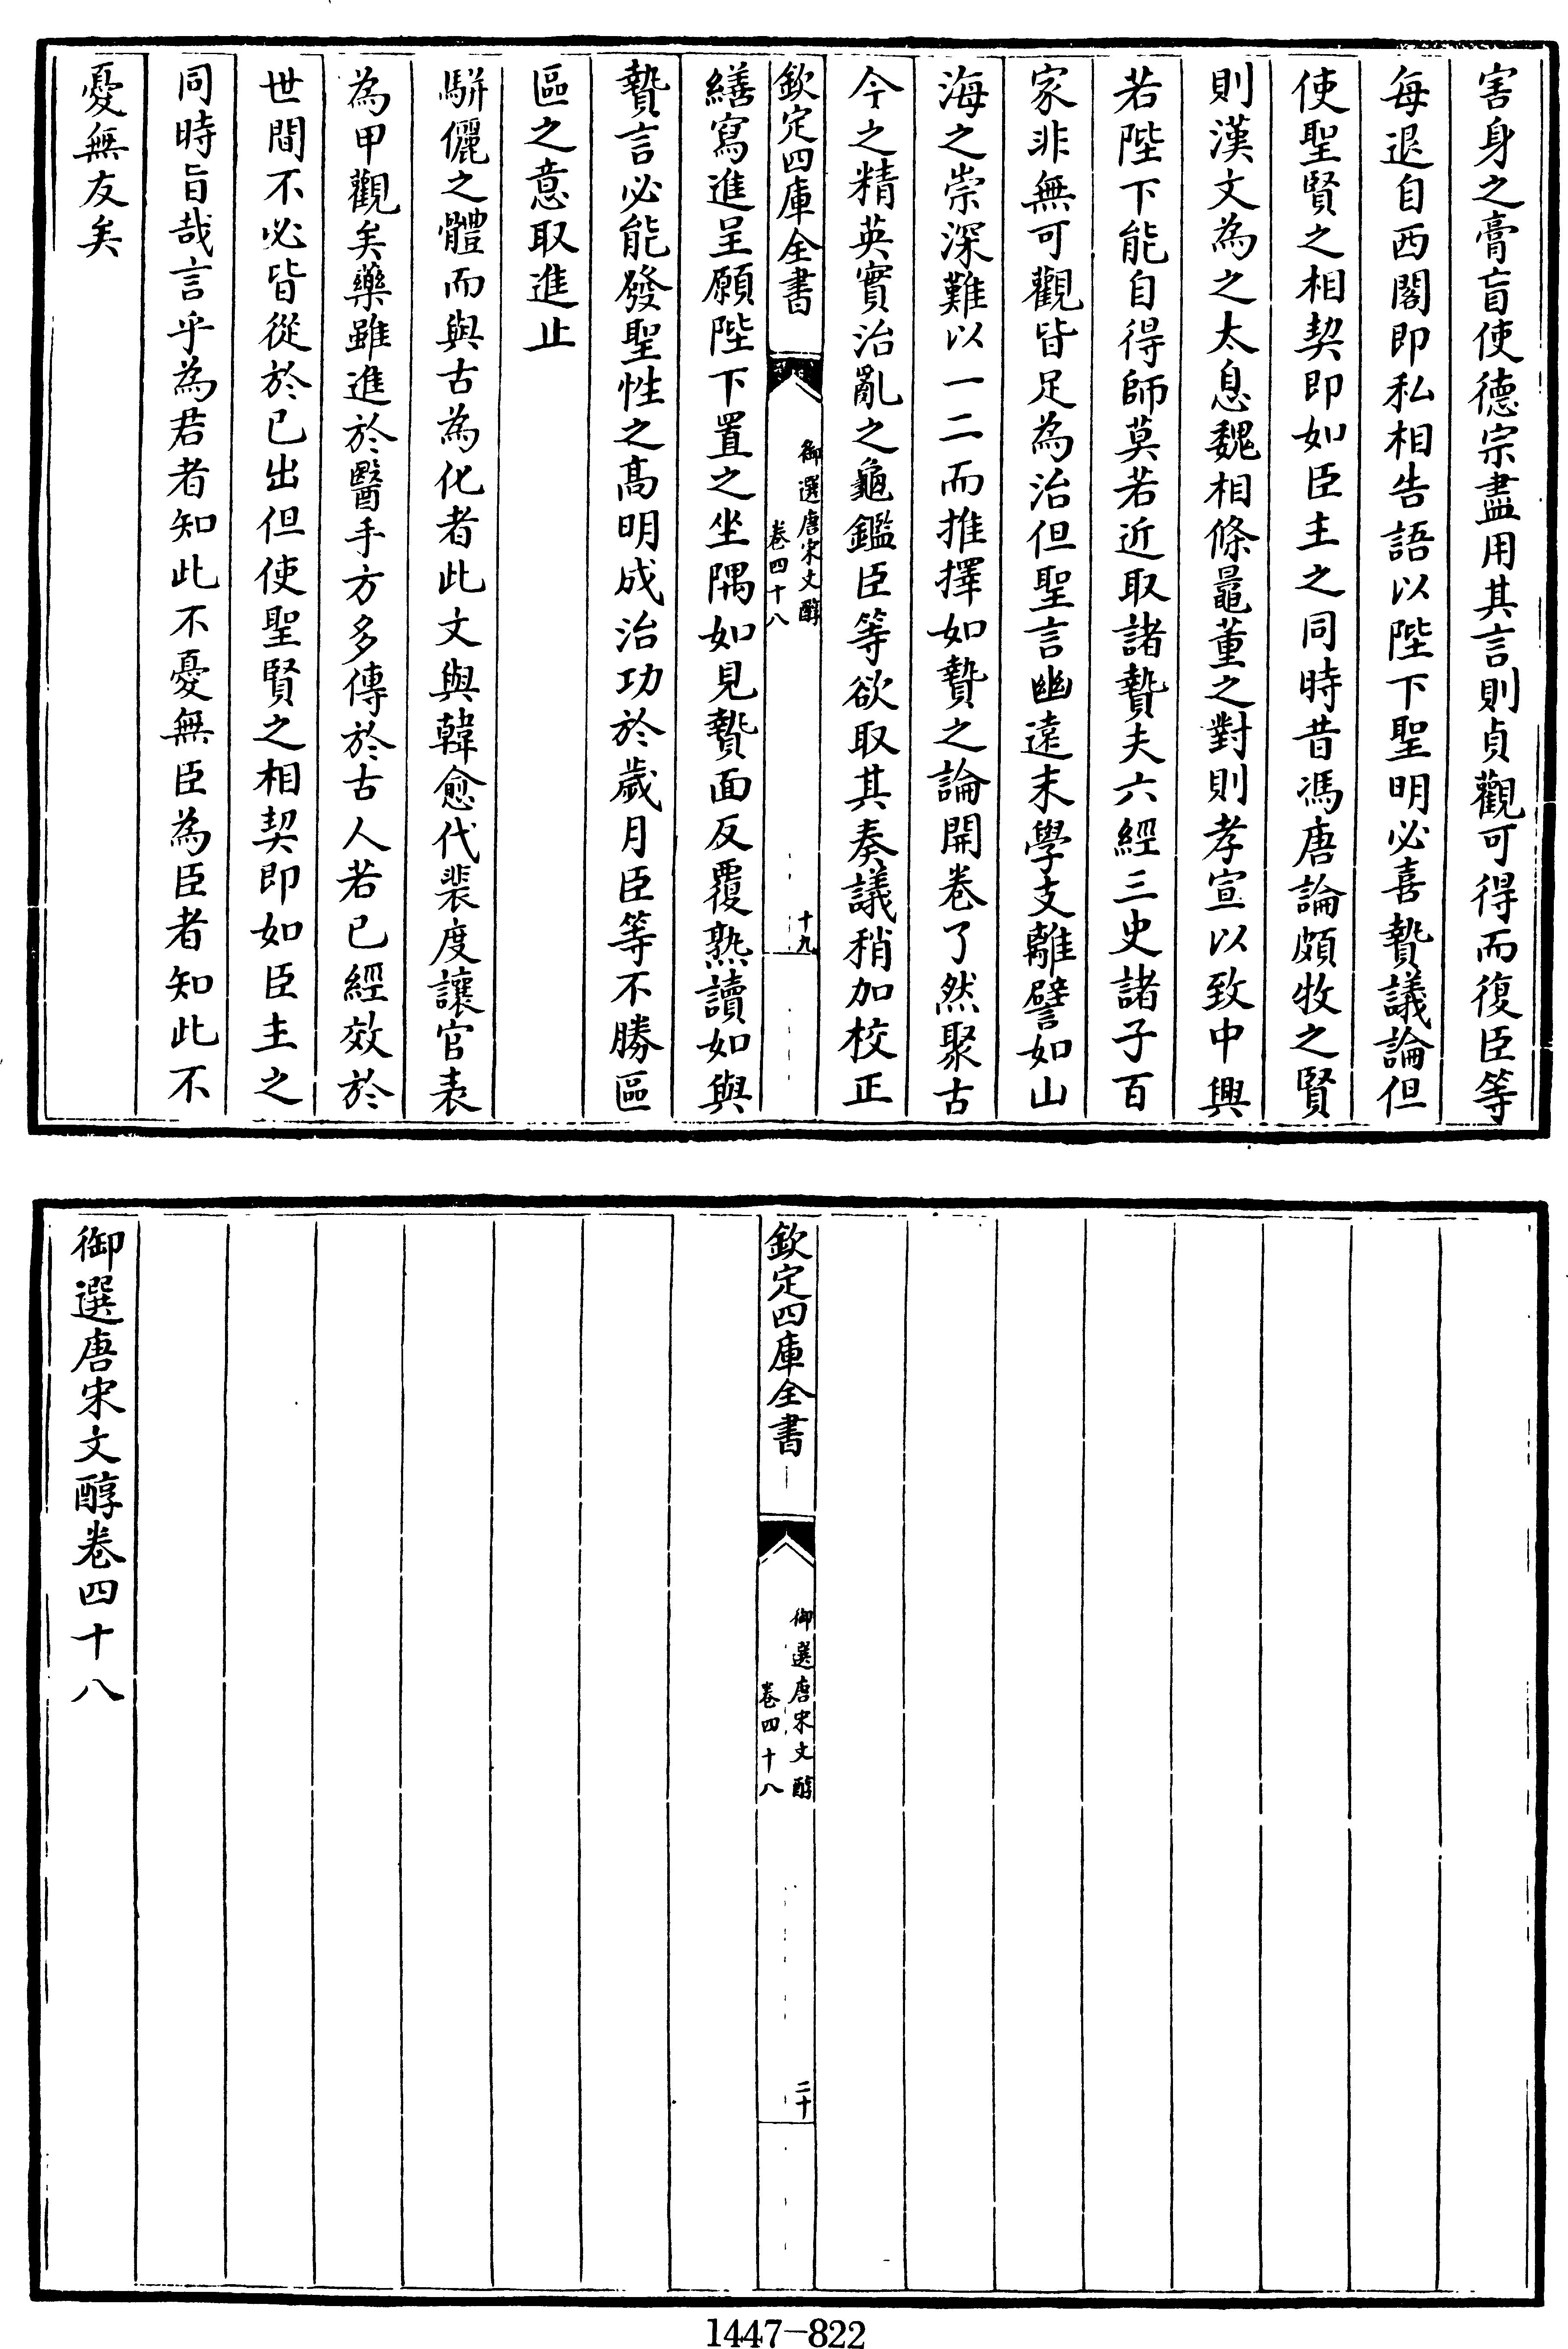 害身之膏肓使德宗盡用其言則貞觀可得而復臣等
每退自西閣即私相告語以陛下聖明必喜贄議論但
使聖賢之相契即如臣主之同時昔馮唐論頗牧之賢
則漢文為之太息魏相條鼂董之對則孝宣以致中興
若陛下能自得師莫若近取諸贄夫六經三史諸子百
家非無可觀皆足為治但聖言幽遠末學支離譬如山
海之崇深難以一二而推擇如贄之論開卷了然聚古
今之精英實治亂之龜鑑臣等欲取其奏議稍加校正
欽定四庫全書
御選唐宋文醇
卷四十八
十九
繕寫進呈願陛下置之坐隅如見贄面反覆熟讀如與
贄言必能發聖性之髙明成治功於歲月臣等不勝區
區之意取進止
駢儷之體而與古為化者此文與韓愈代裴度讓官表
為甲觀矣藥雖進於醫手方多傳於古人若已經效於
世間不必皆從於已出但使聖賢之相契即如臣主之
同時旨哉言乎為君者知此不憂無臣為臣者知此不
憂無友矣
欽定四庫全書
御選唐宋文醇
卷四十八
二十
御選唐宋文醇卷四十八
1447-822